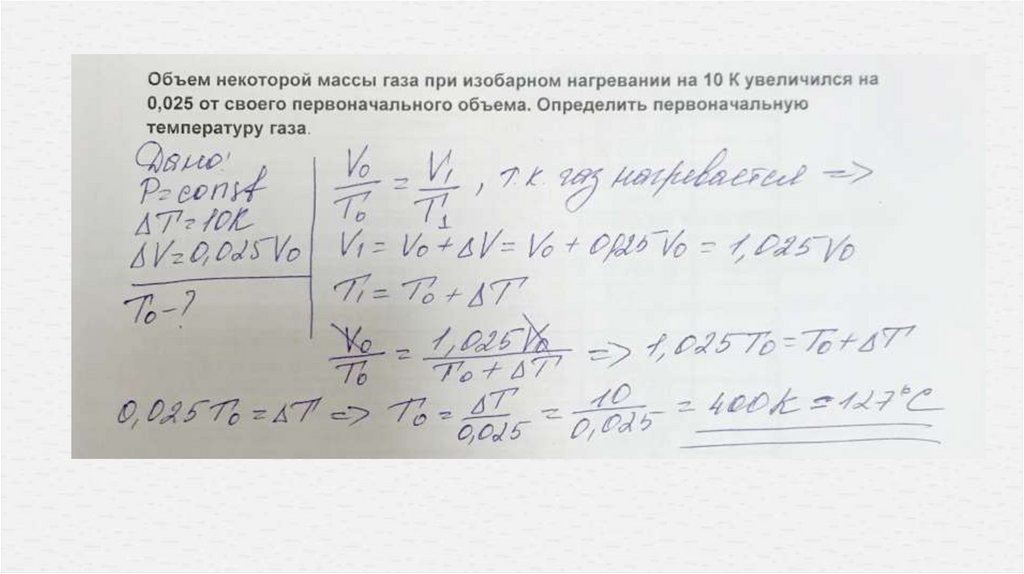 Объем некоторой массы газа при изобарном нагревании на 10 К увеличился на
0,025 от своего первоначального объема. Определить первоначальную
температуру газа.
Дано:
P=const
ΔT=10K
ΔV=0,025V₀
T₀-?
V₀/T₀ = V₁/T₁, т.к. газ нагревается =>
V₁ = V₀ + ΔV = V₀ + 0,025V₀ = 1,025V₀
T₁ = T₀ + ΔT
V₀/T₀ = 1,025V₀/(T₀ + ΔT) => 1,025T₀ = T₀ + ΔT
0,025T₀ = ΔT => T₀ = ΔT/0,025 = 10/0,025 = 400K = 127°C